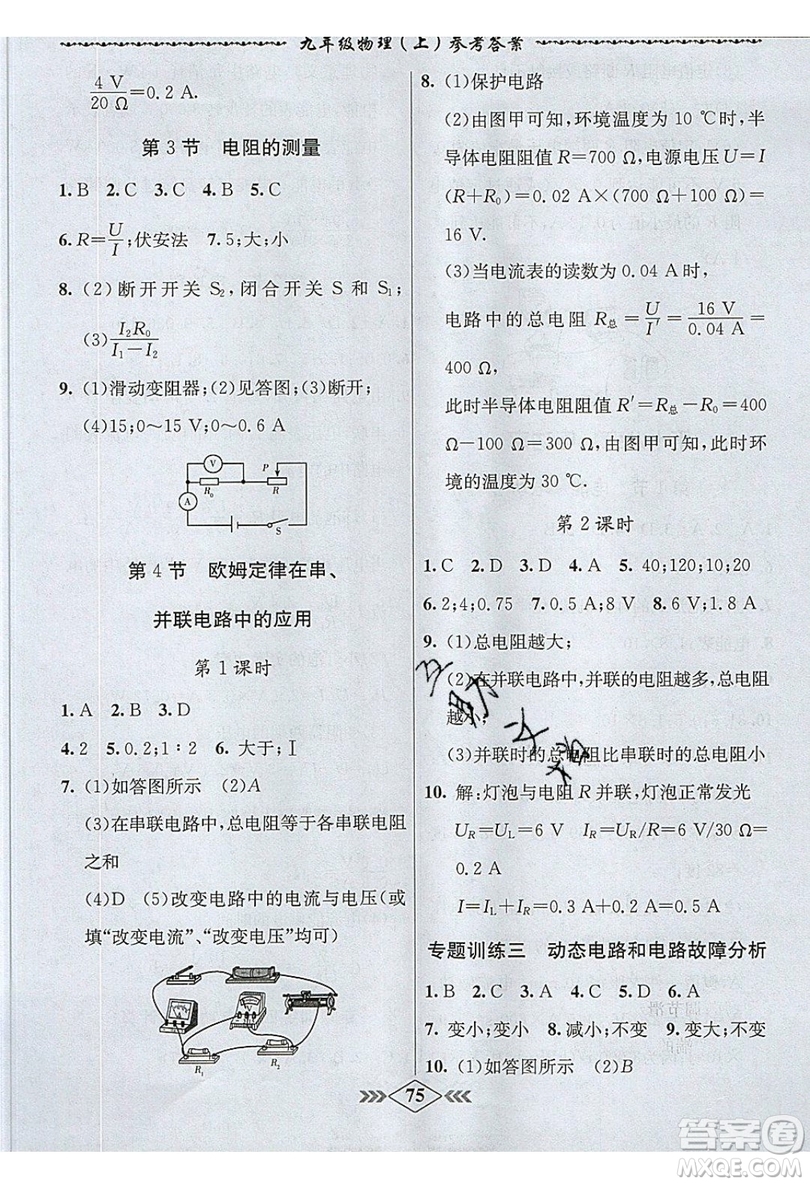 九年级物理(上)参考答案
4 V/20 Ω=0.2 A.
第3节 电阻的测量
1.B 2.C 3.C 4.B 5.C
6.R=U/I;伏安法 7.5;大;小
8.(2)断开开关S₂,闭合开关S和S₁;
(3)I₂R₀/(I₁-I₂)
9.(1)滑动变阻器;(2)见答图;(3)断开;
(4)15;0~15 V;0~0.6 A
V P
R₀ R
A
S
第4节 欧姆定律在串、
并联电路中的应用
第1课时
1.A 2.B 3.D
4.2 5.0.2;1∶2 6.大于;Ⅰ
7.(1)如答图所示 (2)A
(3)在串联电路中,总电阻等于各串联电阻
之和
(4)D (5)改变电路中的电流与电压(或
填“改变电流”、“改变电压”均可)
R₁ R₂
8.(1)保护电路
(2)由图甲可知,环境温度为10 ℃时,半
导体电阻阻值R=700 Ω,电源电压U=I
(R+R₀)=0.02 A×(700 Ω+100 Ω)=
16 V.
(3)当电流表的读数为0.04 A时,
电路中的总电阻R总=U/I′=16 V/0.04 A=
400 Ω,
此时半导体电阻阻值R′=R总-R₀=400
Ω-100 Ω=300 Ω,由图甲可知,此时环
境的温度为30 ℃.
第2课时
1.C 2.D 3.D 4.A 5.40;120;10;20
6.2;4;0.75 7.0.5A;8 V 8.6 V;1.8 A
9.(1)总电阻越大;
(2)在并联电路中,并联的电阻越多,总电阻
越小;
(3)并联时的总电阻比串联时的总电阻小
10.解:灯泡与电阻R并联,灯泡正常发光
U_R=U_L=6 V I_R=U_R/R=6 V/30 Ω=
0.2 A
I=I_L+I_R=0.5 A+0.2 A=0.7 A
专题训练三 动态电路和电路故障分析
1.B 2.C 3.A 4.C 5.D 6.A
7.变小;变小 8.减小;不变 9.变大;不变
10.(1)如答图所示 (2)B
75
答案圈
MXQE.COM